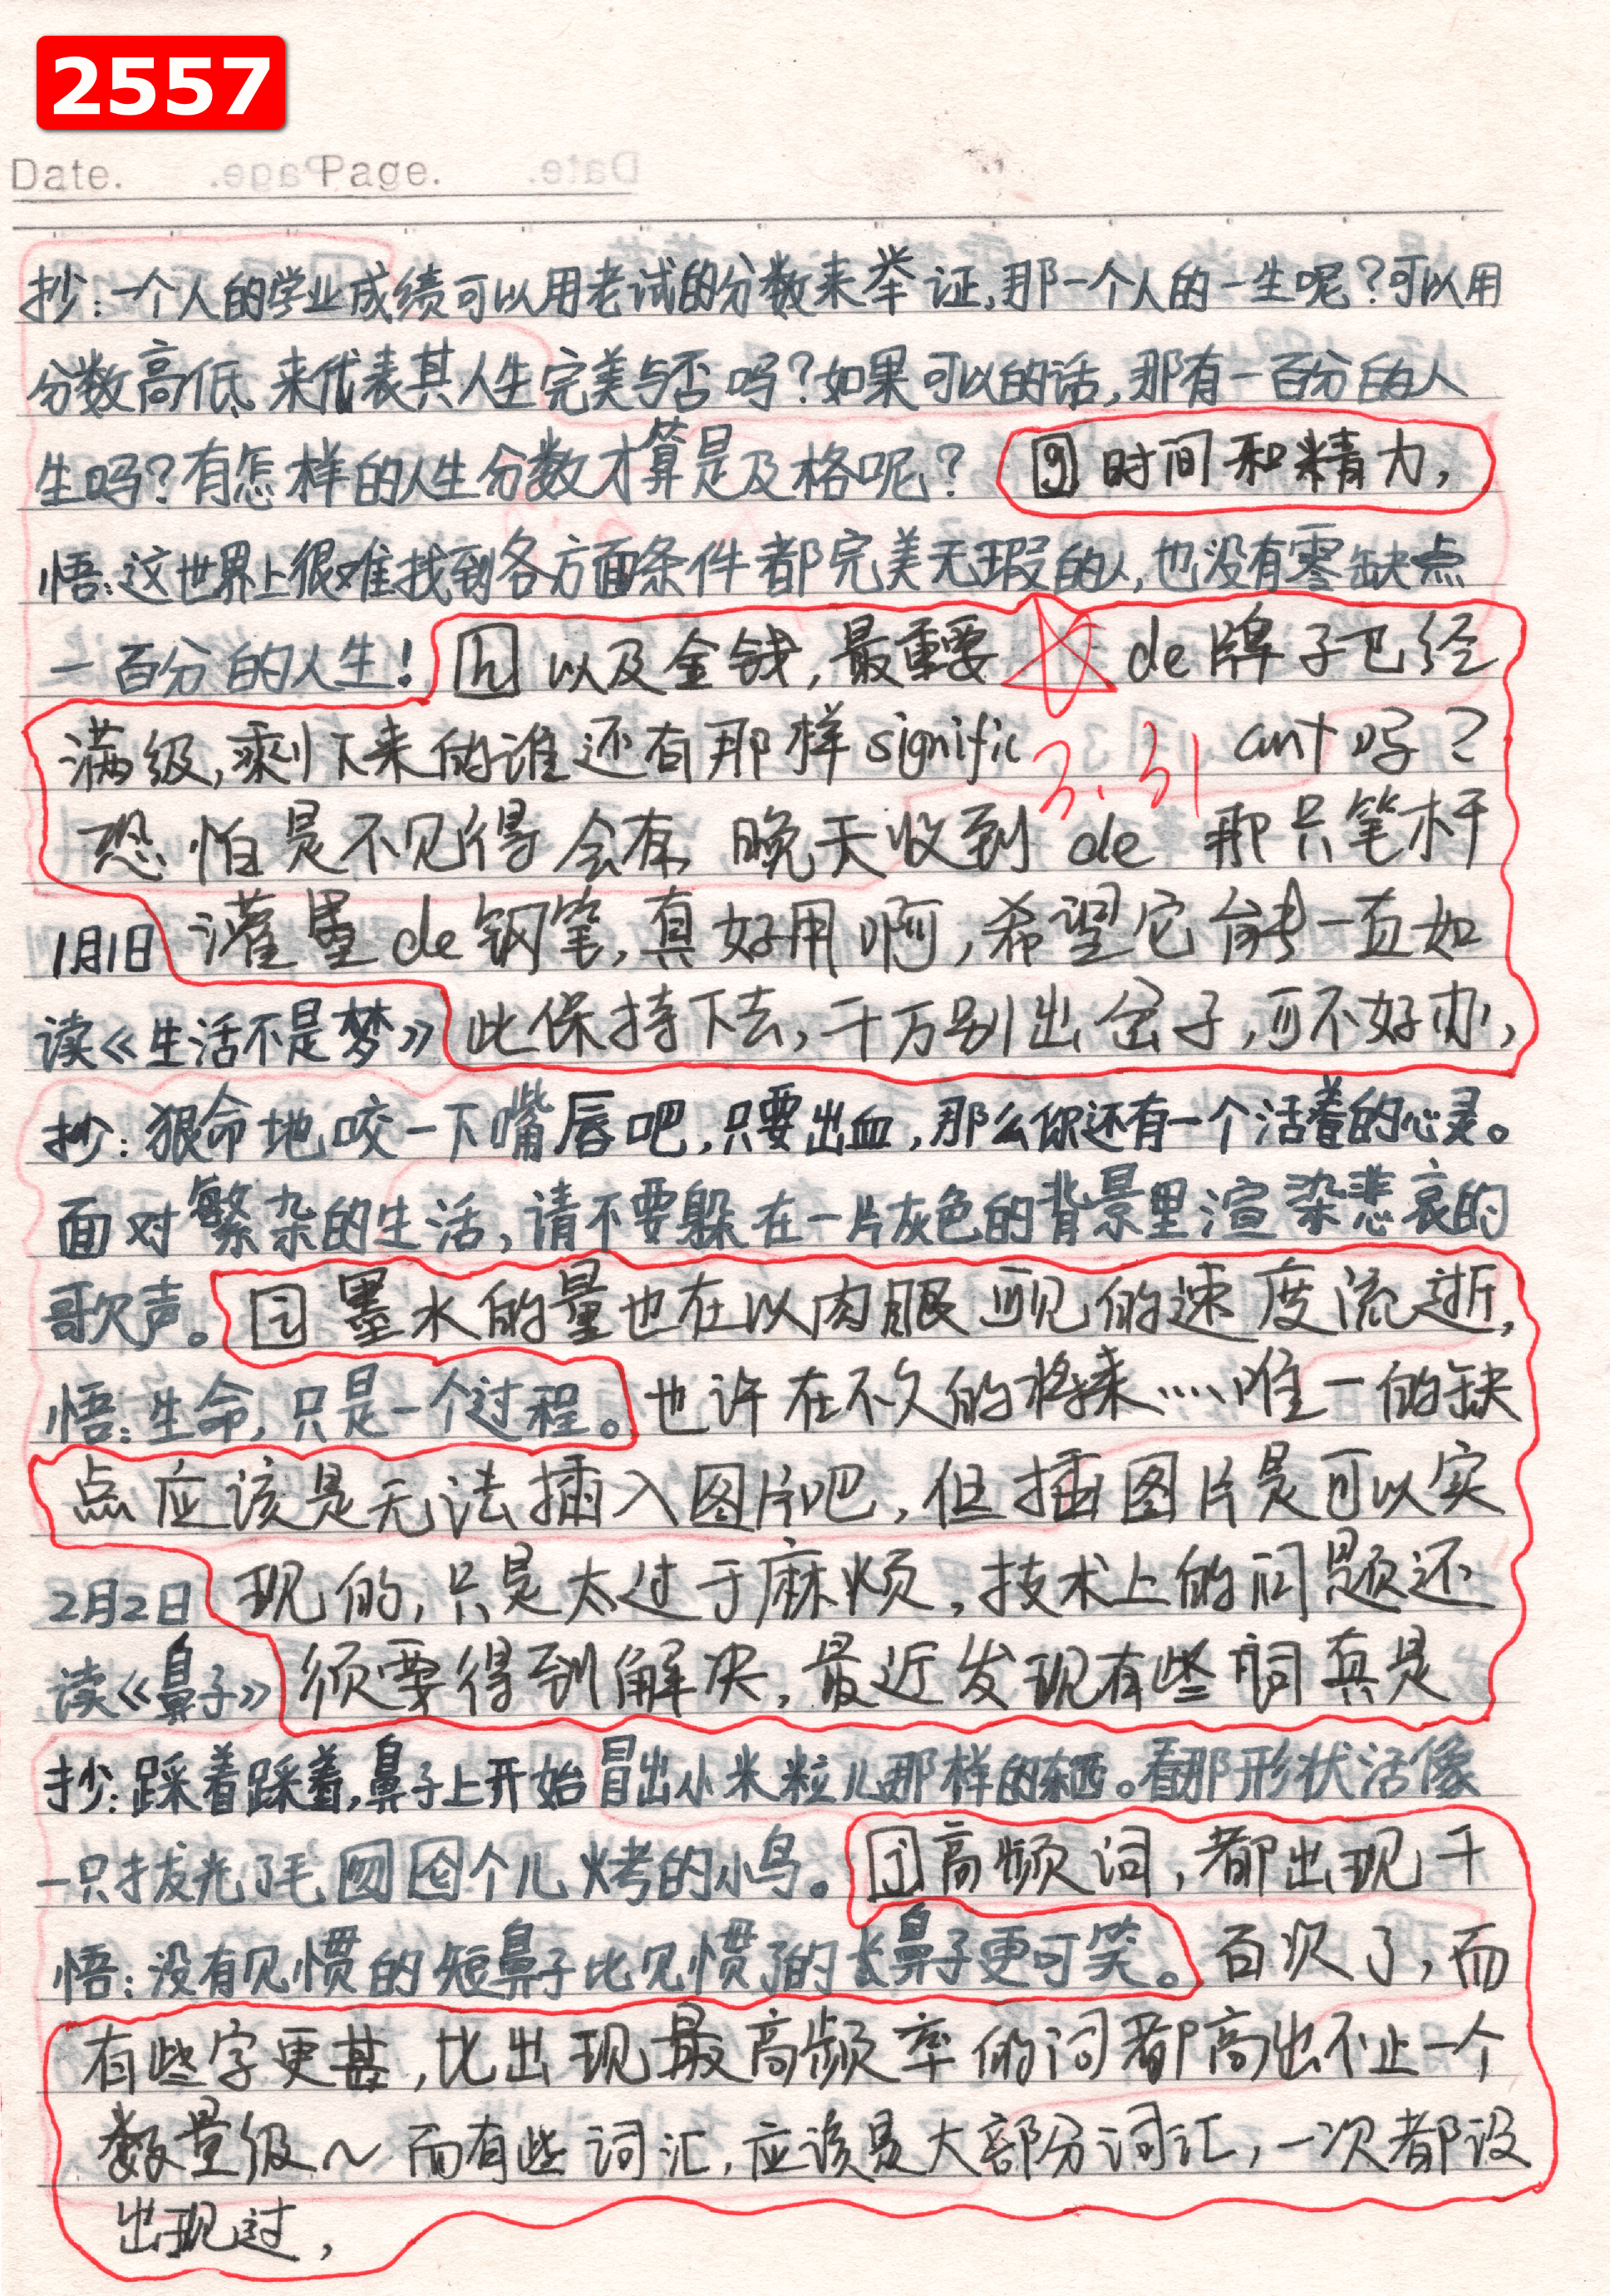 2557
Date. Page.
抄:一个人的学业成绩可以用考试的分数来举证,那一个人的一生呢?可以用
分数高低来代表其人生完美与否吗?如果可以的话,那有一百分的人
生吗?有怎样的人生分数才算是及格呢? g 时间和精力,
悟:这世界上很难找到各方面条件都完美无瑕的人,也没有零缺点
一百分的人生! h 以及金钱,最重要 de牌子已经
满级,剩下来的谁还有那样signific 3.31 ant吗?
恐怕是不见得会有, 晚天收到 de 那只笔杆
1月1日 灌墨de钢笔,真好用啊,希望它能一直如
读《生活不是梦》 此保持下去,千万别出岔子,可不好办,
抄:狠命地咬一下嘴唇吧,只要出血,那么你还有一个活着的心灵。
面对繁杂的生活,请不要躲在一片灰色的背景里渲染悲哀的
歌声。 i 墨水的量也在以肉眼可见的速度流逝,
悟:生命,只是一个过程。 也许在不久的将来……唯一的缺
点应该是无法插入图片吧,但插图片是可以实
2月2日 现的,只是太过于麻烦,技术上的问题还
读《鼻子》 须要得到解决,最近发现有些词真是
抄:踩着踩着,鼻子上开始冒出小米粒儿那样的东西。看那形状活像
一只拔光了毛囫囵个儿烤的小鸟。 j 高频词,都出现千
悟:没有见惯的短鼻子比见惯了的长鼻子更可笑。 百次了,而
有些字更甚,比出现最高频率的词都高出不止一个
数量级~而有些词汇,应该是大部分词汇,一次都没
出现过,